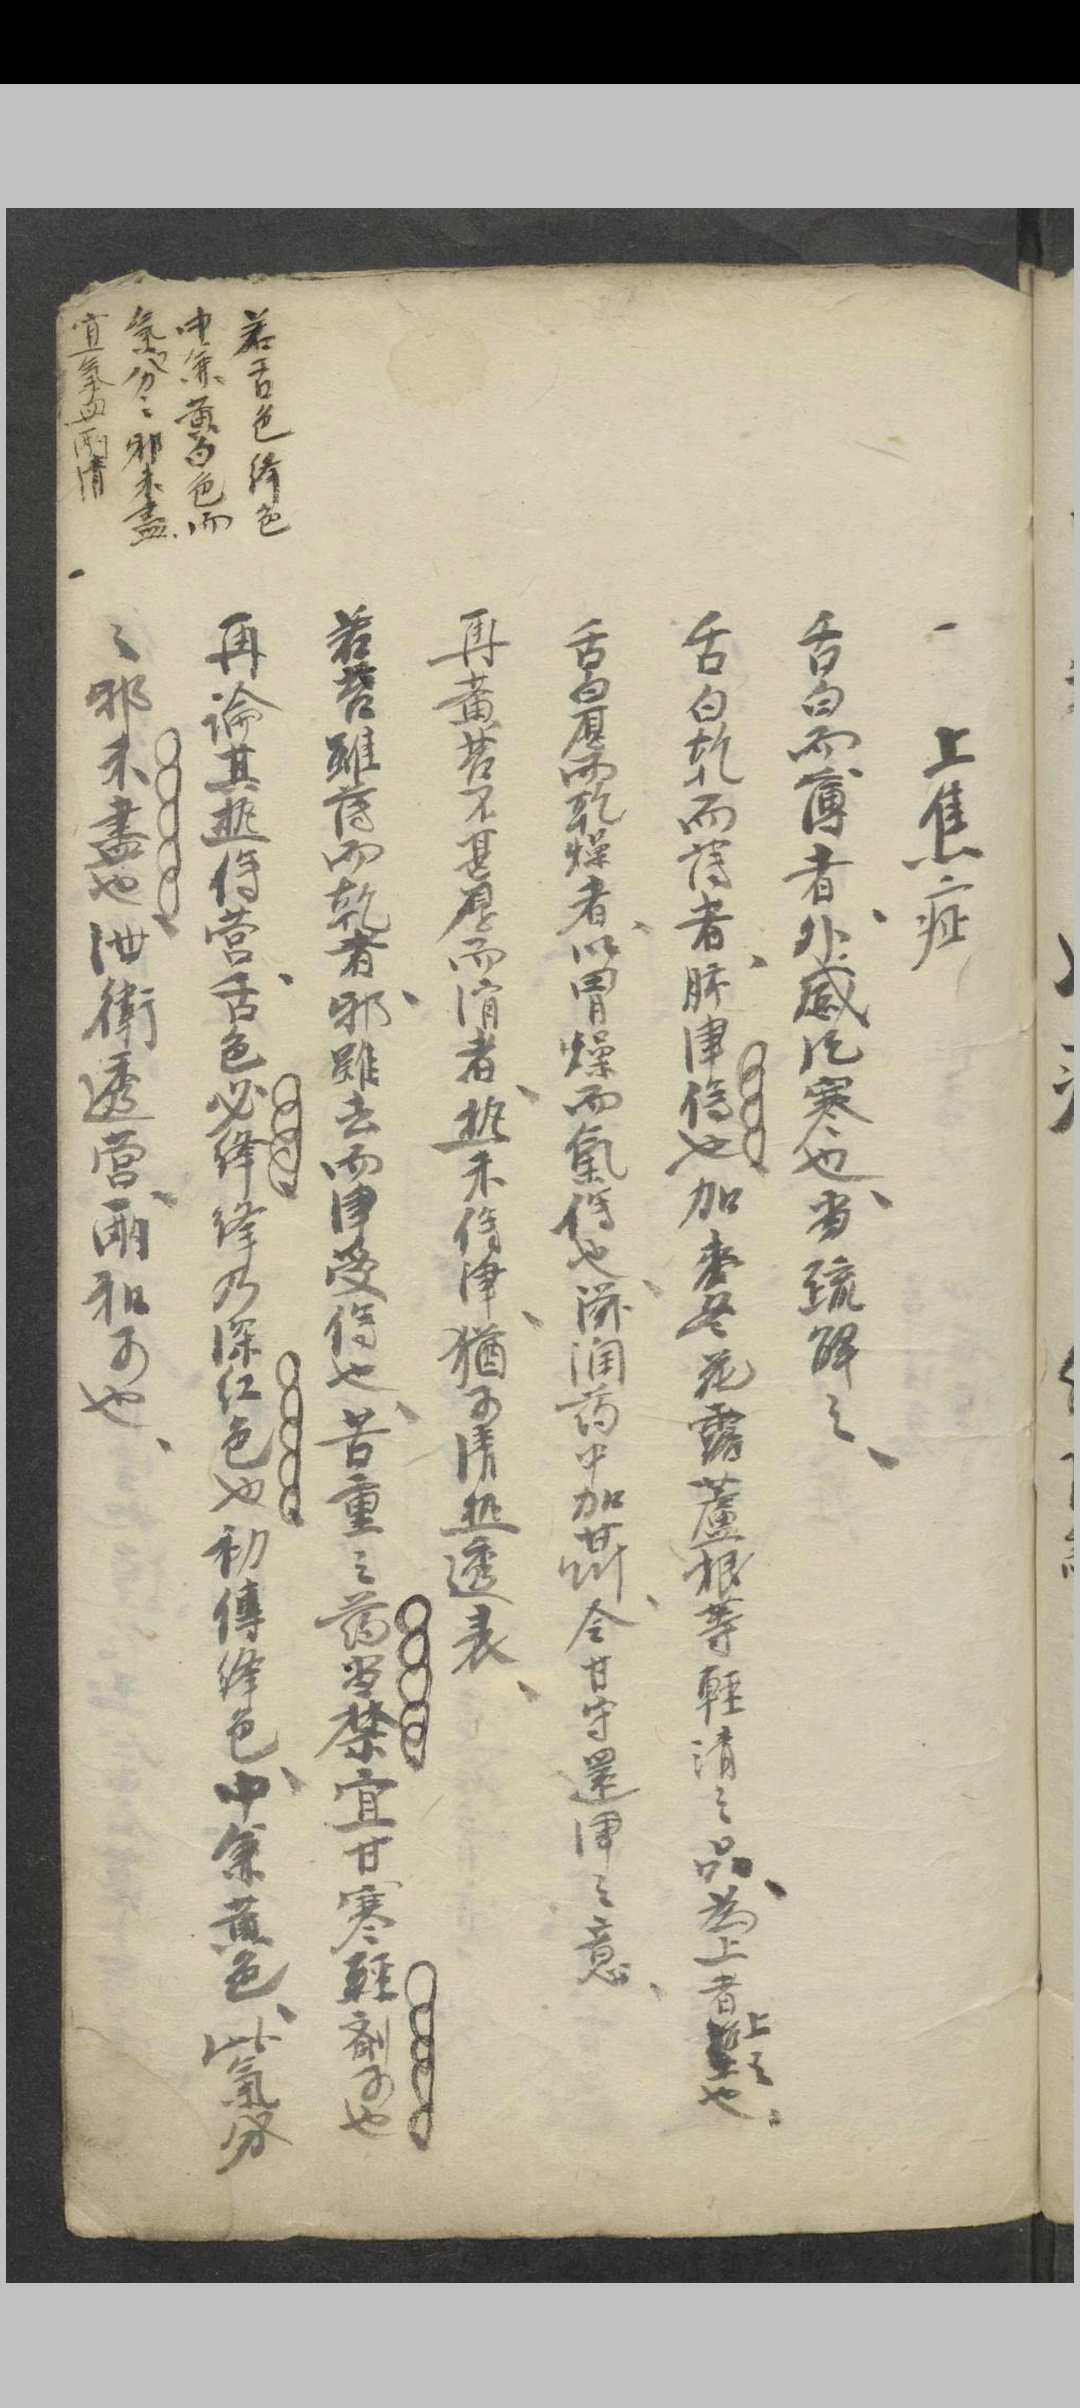 上焦症
舌白而薄者外感风寒也当疏解之
舌白乾而薄者肺津傷也加麥冬花露蘆根等輕清之品為上者上之也
舌白厚而乾燥者此胃燥而氣傷也滋润药中加甘草令甘守還津之意
再黄苔不甚厚而滑者热未傷津猶可清热透表
若苔雖薄而乾者邪雖去而津受傷也苦重之药当禁宜甘寒輕劑可也
再論其热傳营舌色必絳絳乃深红色也初傳絳色中兼黄色此氣分
之邪未盡也泄衛透营兩和可也
若舌色絳色
中兼黄白色而
氣分之邪未盡
宜氣血兩清